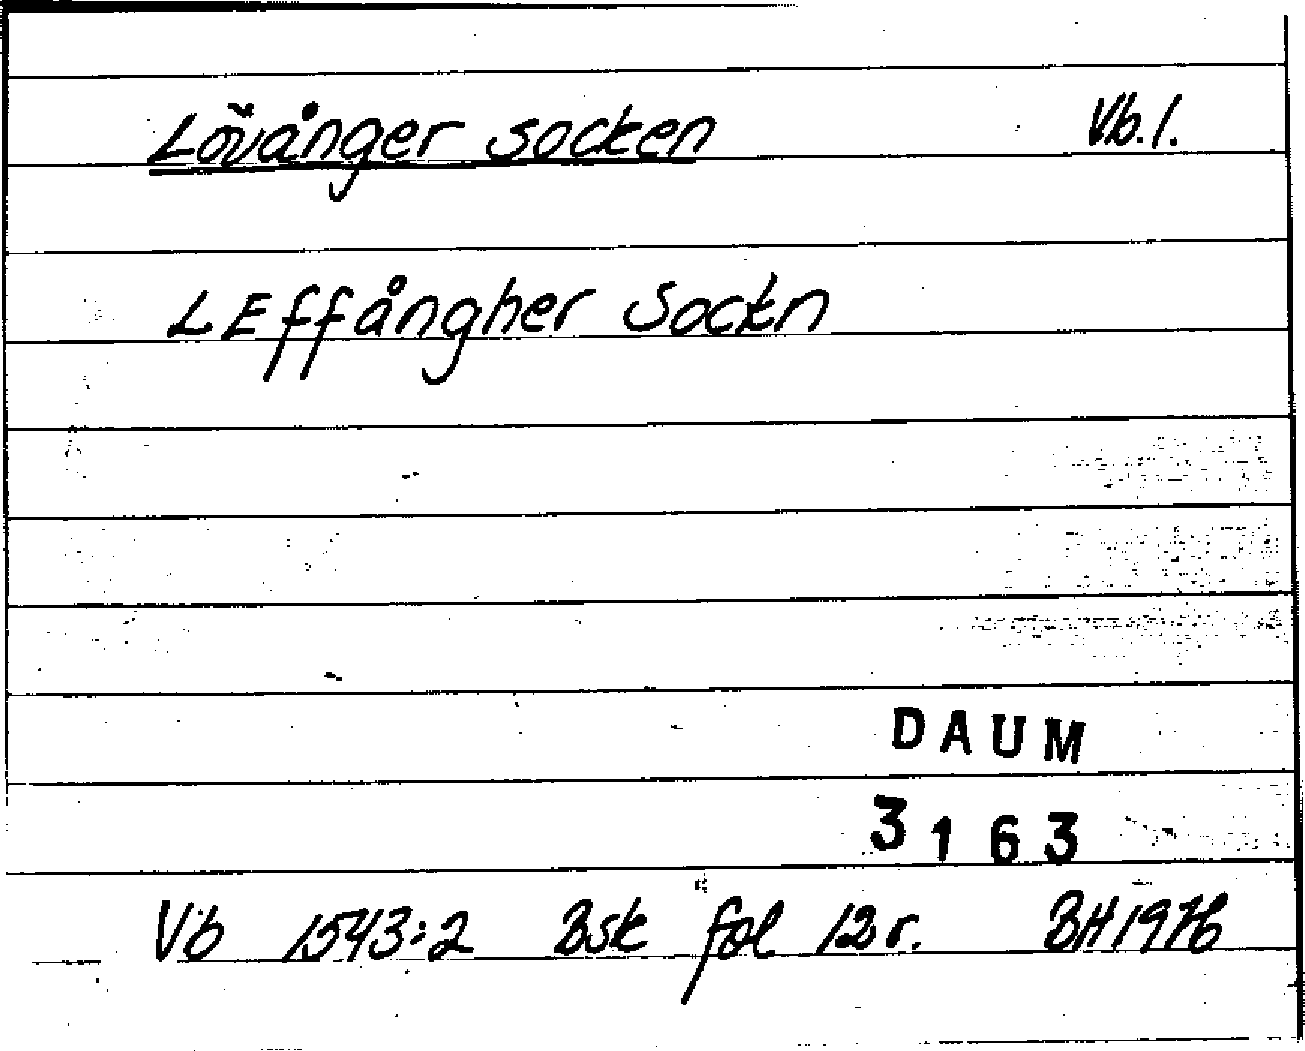 Lövånger socken Vb.l.
LEffångher Sockn
DAUM
3163
Vb 1543:2 Bsk fol 12 r. BH 1976